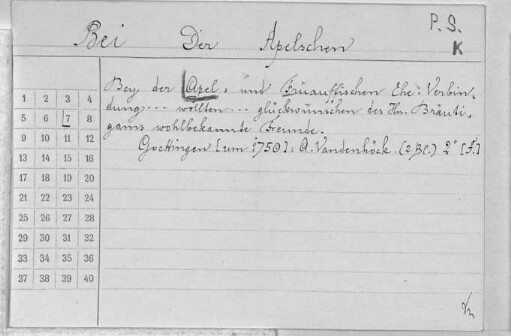 P. S.
K
Bei Der Apelschen
Bey der Apel- und Quauffischen Ehe-Verbin-
dung... wollten... glückwünschen des Hrn. Bräuti-
gams wohlbekannte Freunde.
Goettingen [um 1750]: A. Vandenhöck. (2 Bl.) 2° [f.]
1 2 3 4
5 6 7 8
9 10 11 12
13 14 15 16
17 18 19 20
21 22 23 24
25 26 27 28
29 30 31 32
33 34 35 36
37 38 39 40